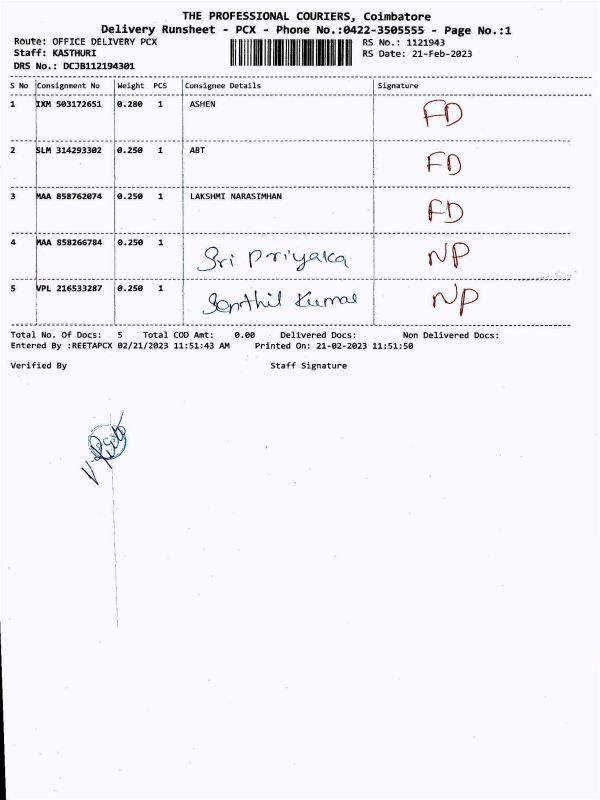 THE PROFESSIONAL COURIERS, Coimbatore
Delivery Runsheet - PCX - Phone No.:0422-3505555 - Page No.:1
Route: OFFICE DELIVERY PCX RS No.: 1121943
Staff: KASTHURI RS Date: 21-Feb-2023
DRS No.: DCJB112194301
S No Consignment No Weight PCS Consignee Details Signature
1 IXM 503172651 0.280 1 ASHEN FD
2 SLM 314293302 0.250 1 ABT FD
3 MAA 858762074 0.250 1 LAKSHMI NARASIMHAN FD
4 MAA 858266784 0.250 1 Sri Priyaka NP
5 VPL 216533287 0.250 1 Senthil Kumar NP
Total No. Of Docs: 5 Total COD Amt: 0.00 Delivered Docs: Non Delivered Docs:
Entered By :REETAPCX 02/21/2023 11:51:43 AM Printed On: 21-02-2023 11:51:50
Verified By Staff Signature